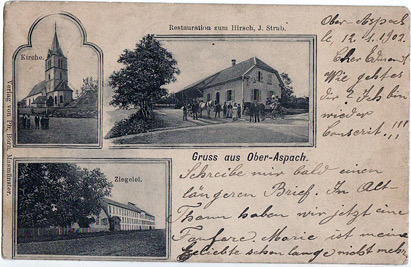 Restauration zum Hirsch, J. Strub.
Kirche.
Verlag von Ph. Born, Masmünster.
Ziegelei.
Gruss aus Ober-Aspach.
Ober-Aspach
le, 12.1.1902.
Cher Edmond
Wie geht es
dir? Ich bin
wieder
conscrit!!!
Schreibe mir bald einen
längeren Brief. In Alt-
Thann haben wir jetzt eine
Fanfare. Marie ist meine
Geliebte schon lange nicht mehr.